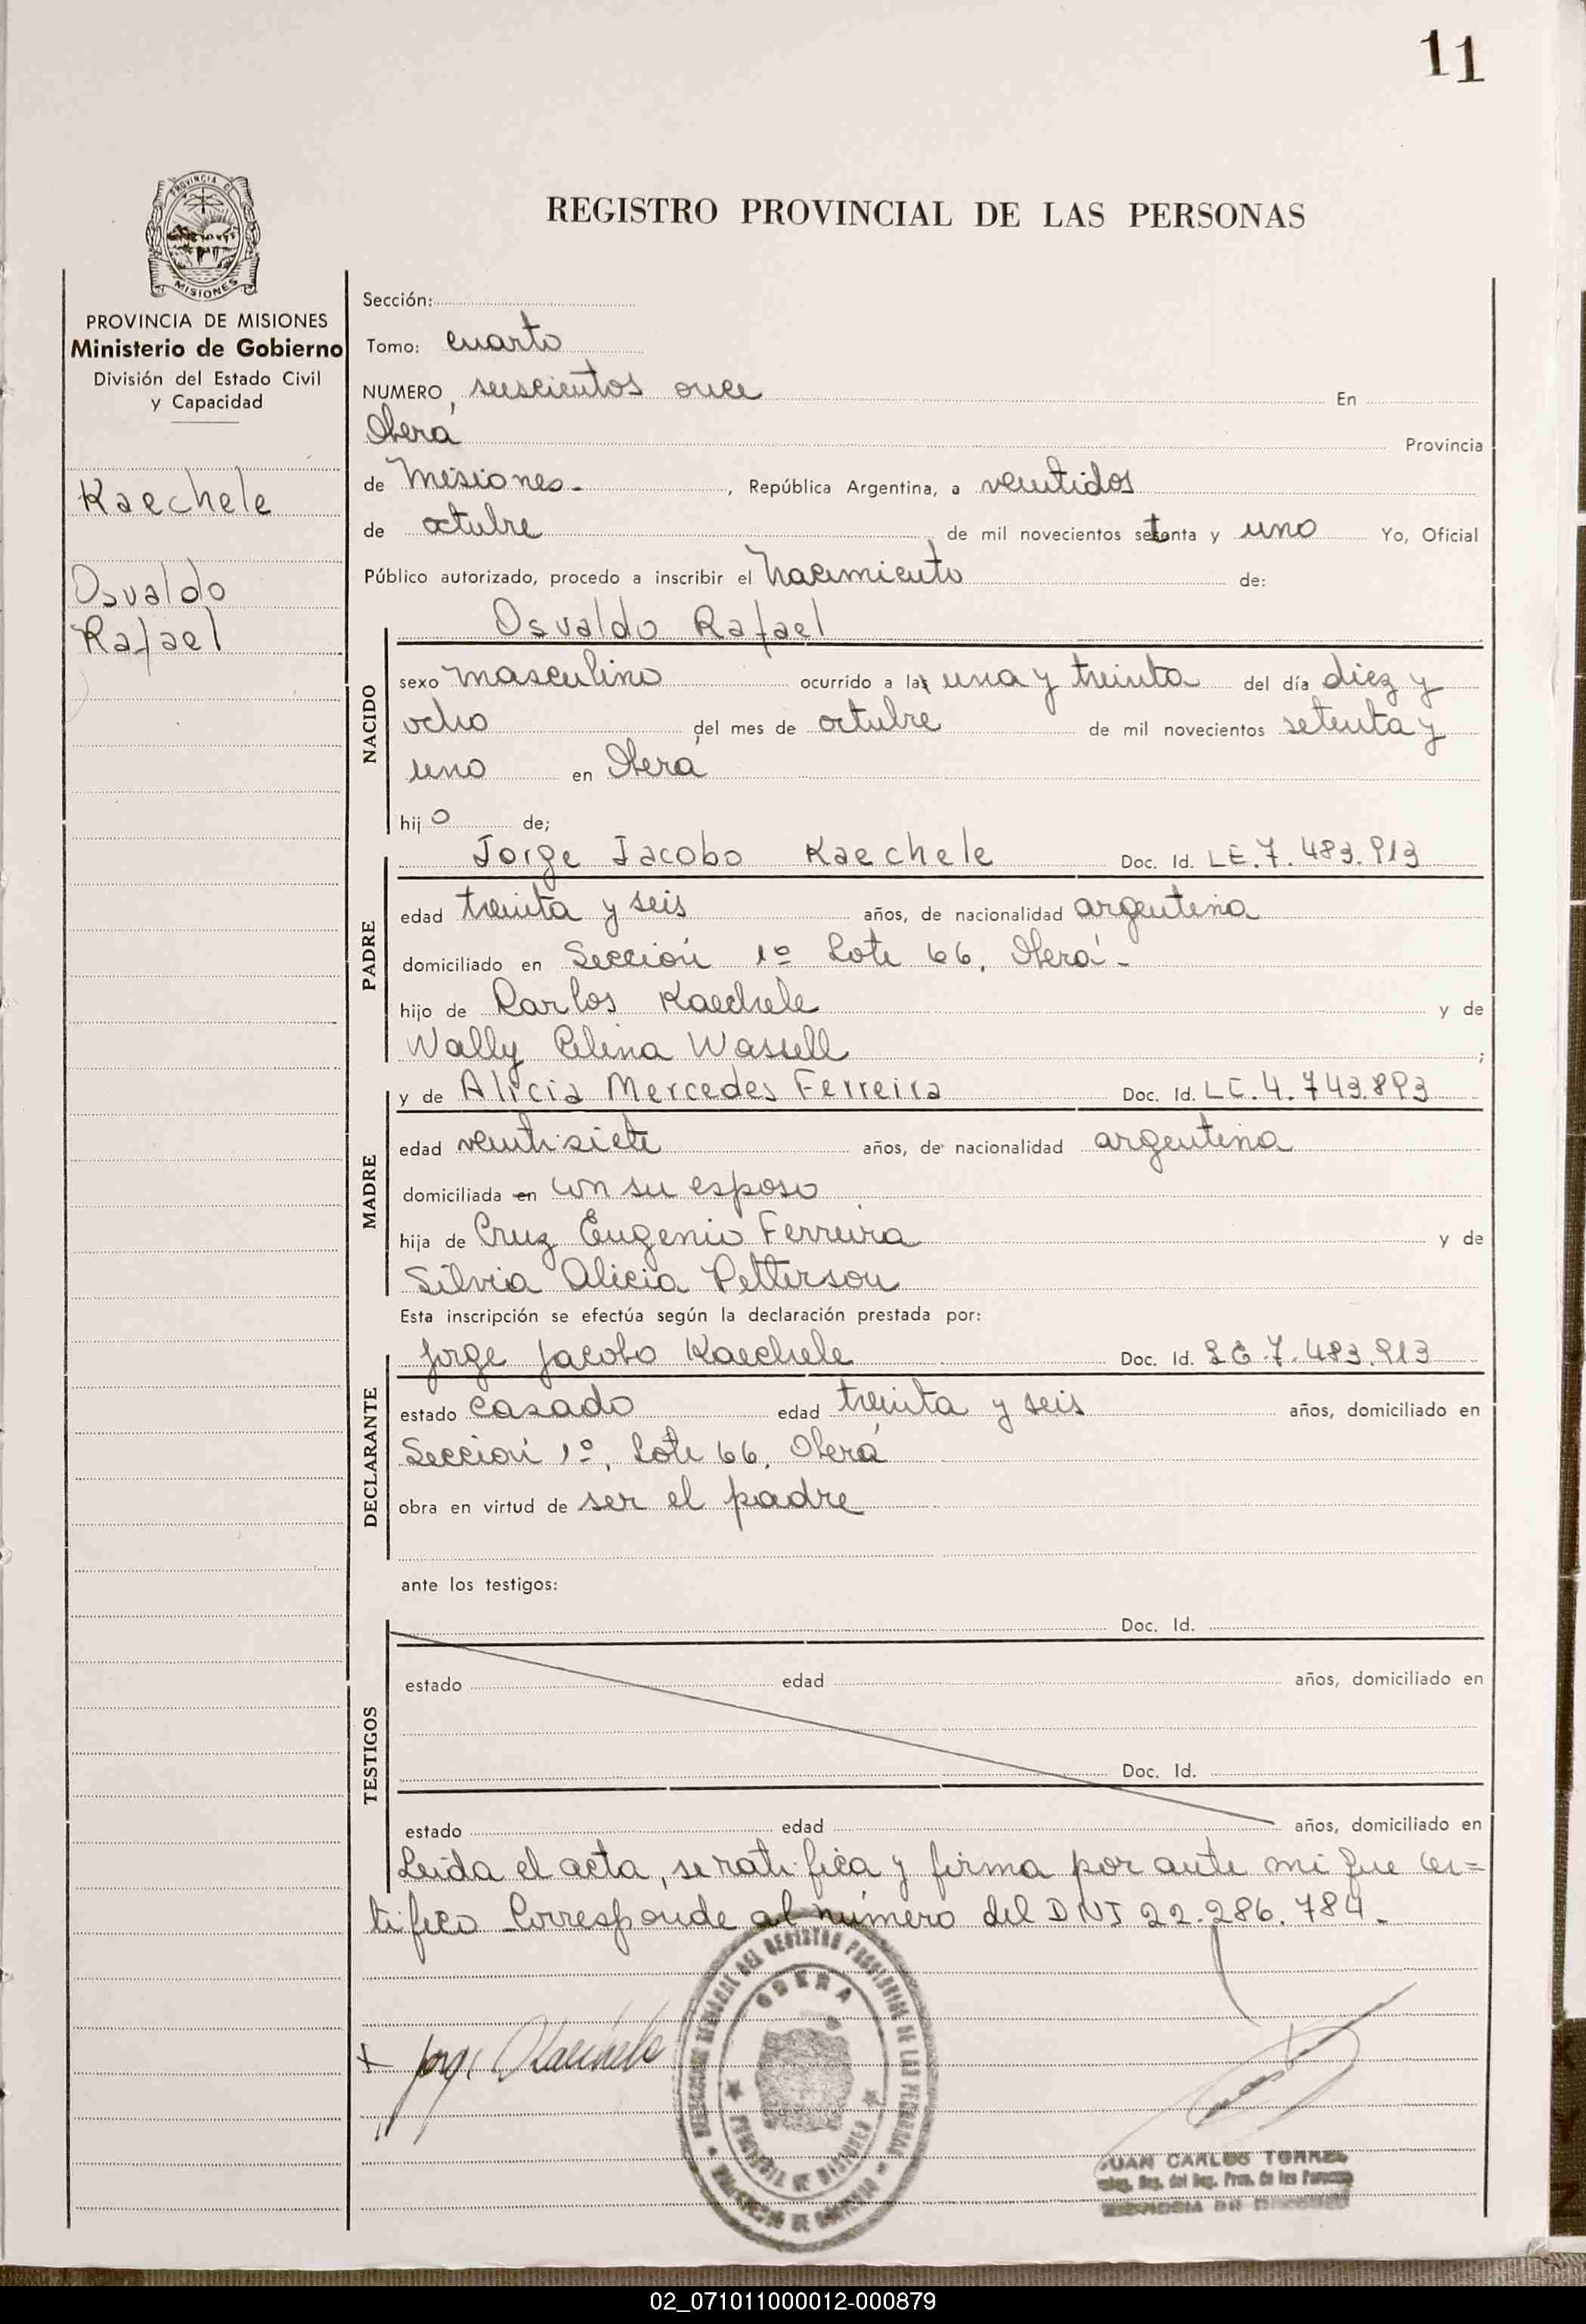 11
PROVINCIA DE
MISIONES
REGISTRO PROVINCIAL DE LAS PERSONAS
PROVINCIA DE MISIONES
Ministerio de Gobierno
División del Estado Civil
y Capacidad
Kaechele
Osvaldo
Rafael
Sección:
Tomo: cuarto
NUMERO, seiscientos once En
Oberá Provincia
de Misiones.- , República Argentina, a veintidos
de octubre de mil novecientos setenta y uno Yo, Oficial
Público autorizado, procedo a inscribir el Nacimiento de:
Osvaldo Rafael
NACIDO
sexo masculino ocurrido a la una y treinta del día diez y
ocho del mes de octubre de mil novecientos setenta y
uno en Oberá
hijo de;
Jorge Jacobo Kaechele Doc. Id. LE.7.483.913
PADRE
edad treinta y seis años, de nacionalidad argentina
domiciliado en Sección 1º Lote 66, Oberá.-
hijo de Carlos Kaechele y de
Wally Celina Wassell ;
y de Alicia Mercedes Ferreira Doc. Id. LC.4.743.893
MADRE
edad veintisiete años, de nacionalidad argentina
domiciliada en con su esposo
hija de Cruz Eugenio Ferreira y de
Silvia Alicia Petterson
Esta inscripción se efectúa según la declaración prestada por:
Jorge Jacobo Kaechele Doc. Id. LE.7.483.913
DECLARANTE
estado casado edad treinta y seis años, domiciliado en
Sección 1º, Lote 66, Oberá
obra en virtud de ser el padre
ante los testigos:
Doc. Id.
TESTIGOS
estado edad años, domiciliado en
Doc. Id.
estado edad años, domiciliado en
Leída el acta, se ratifica y firma por ante mi que cer=
tifico Corresponde al número del DNI 22.286.784.-
OBERA
Jorge Kaechele
JUAN CARLOS TORRES
02_071011000012-000879